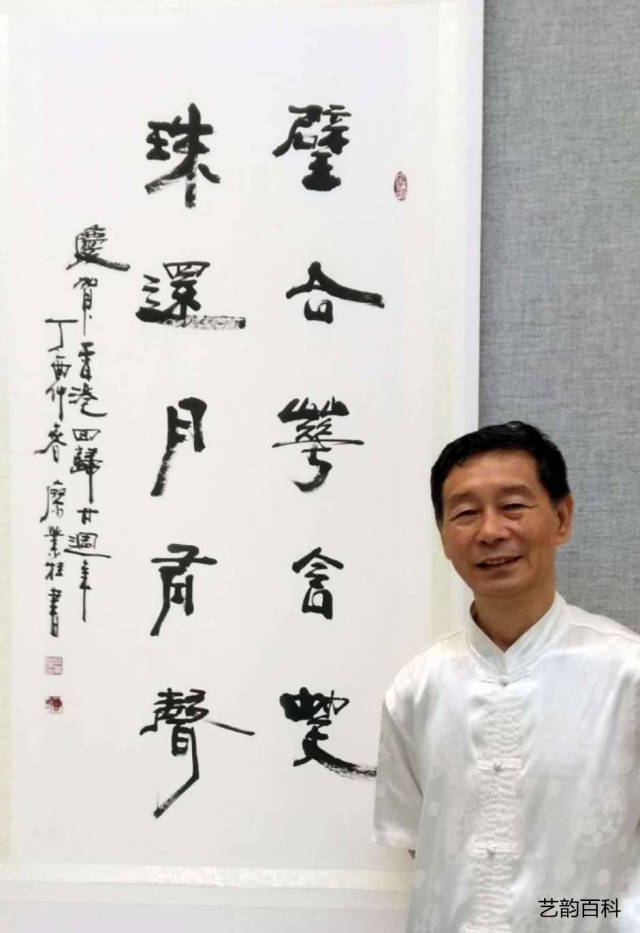 璧合華含笑
珠還月有聲
慶賀香港回歸廿週年
丁酉仲春廖業桂書
艺韵百科